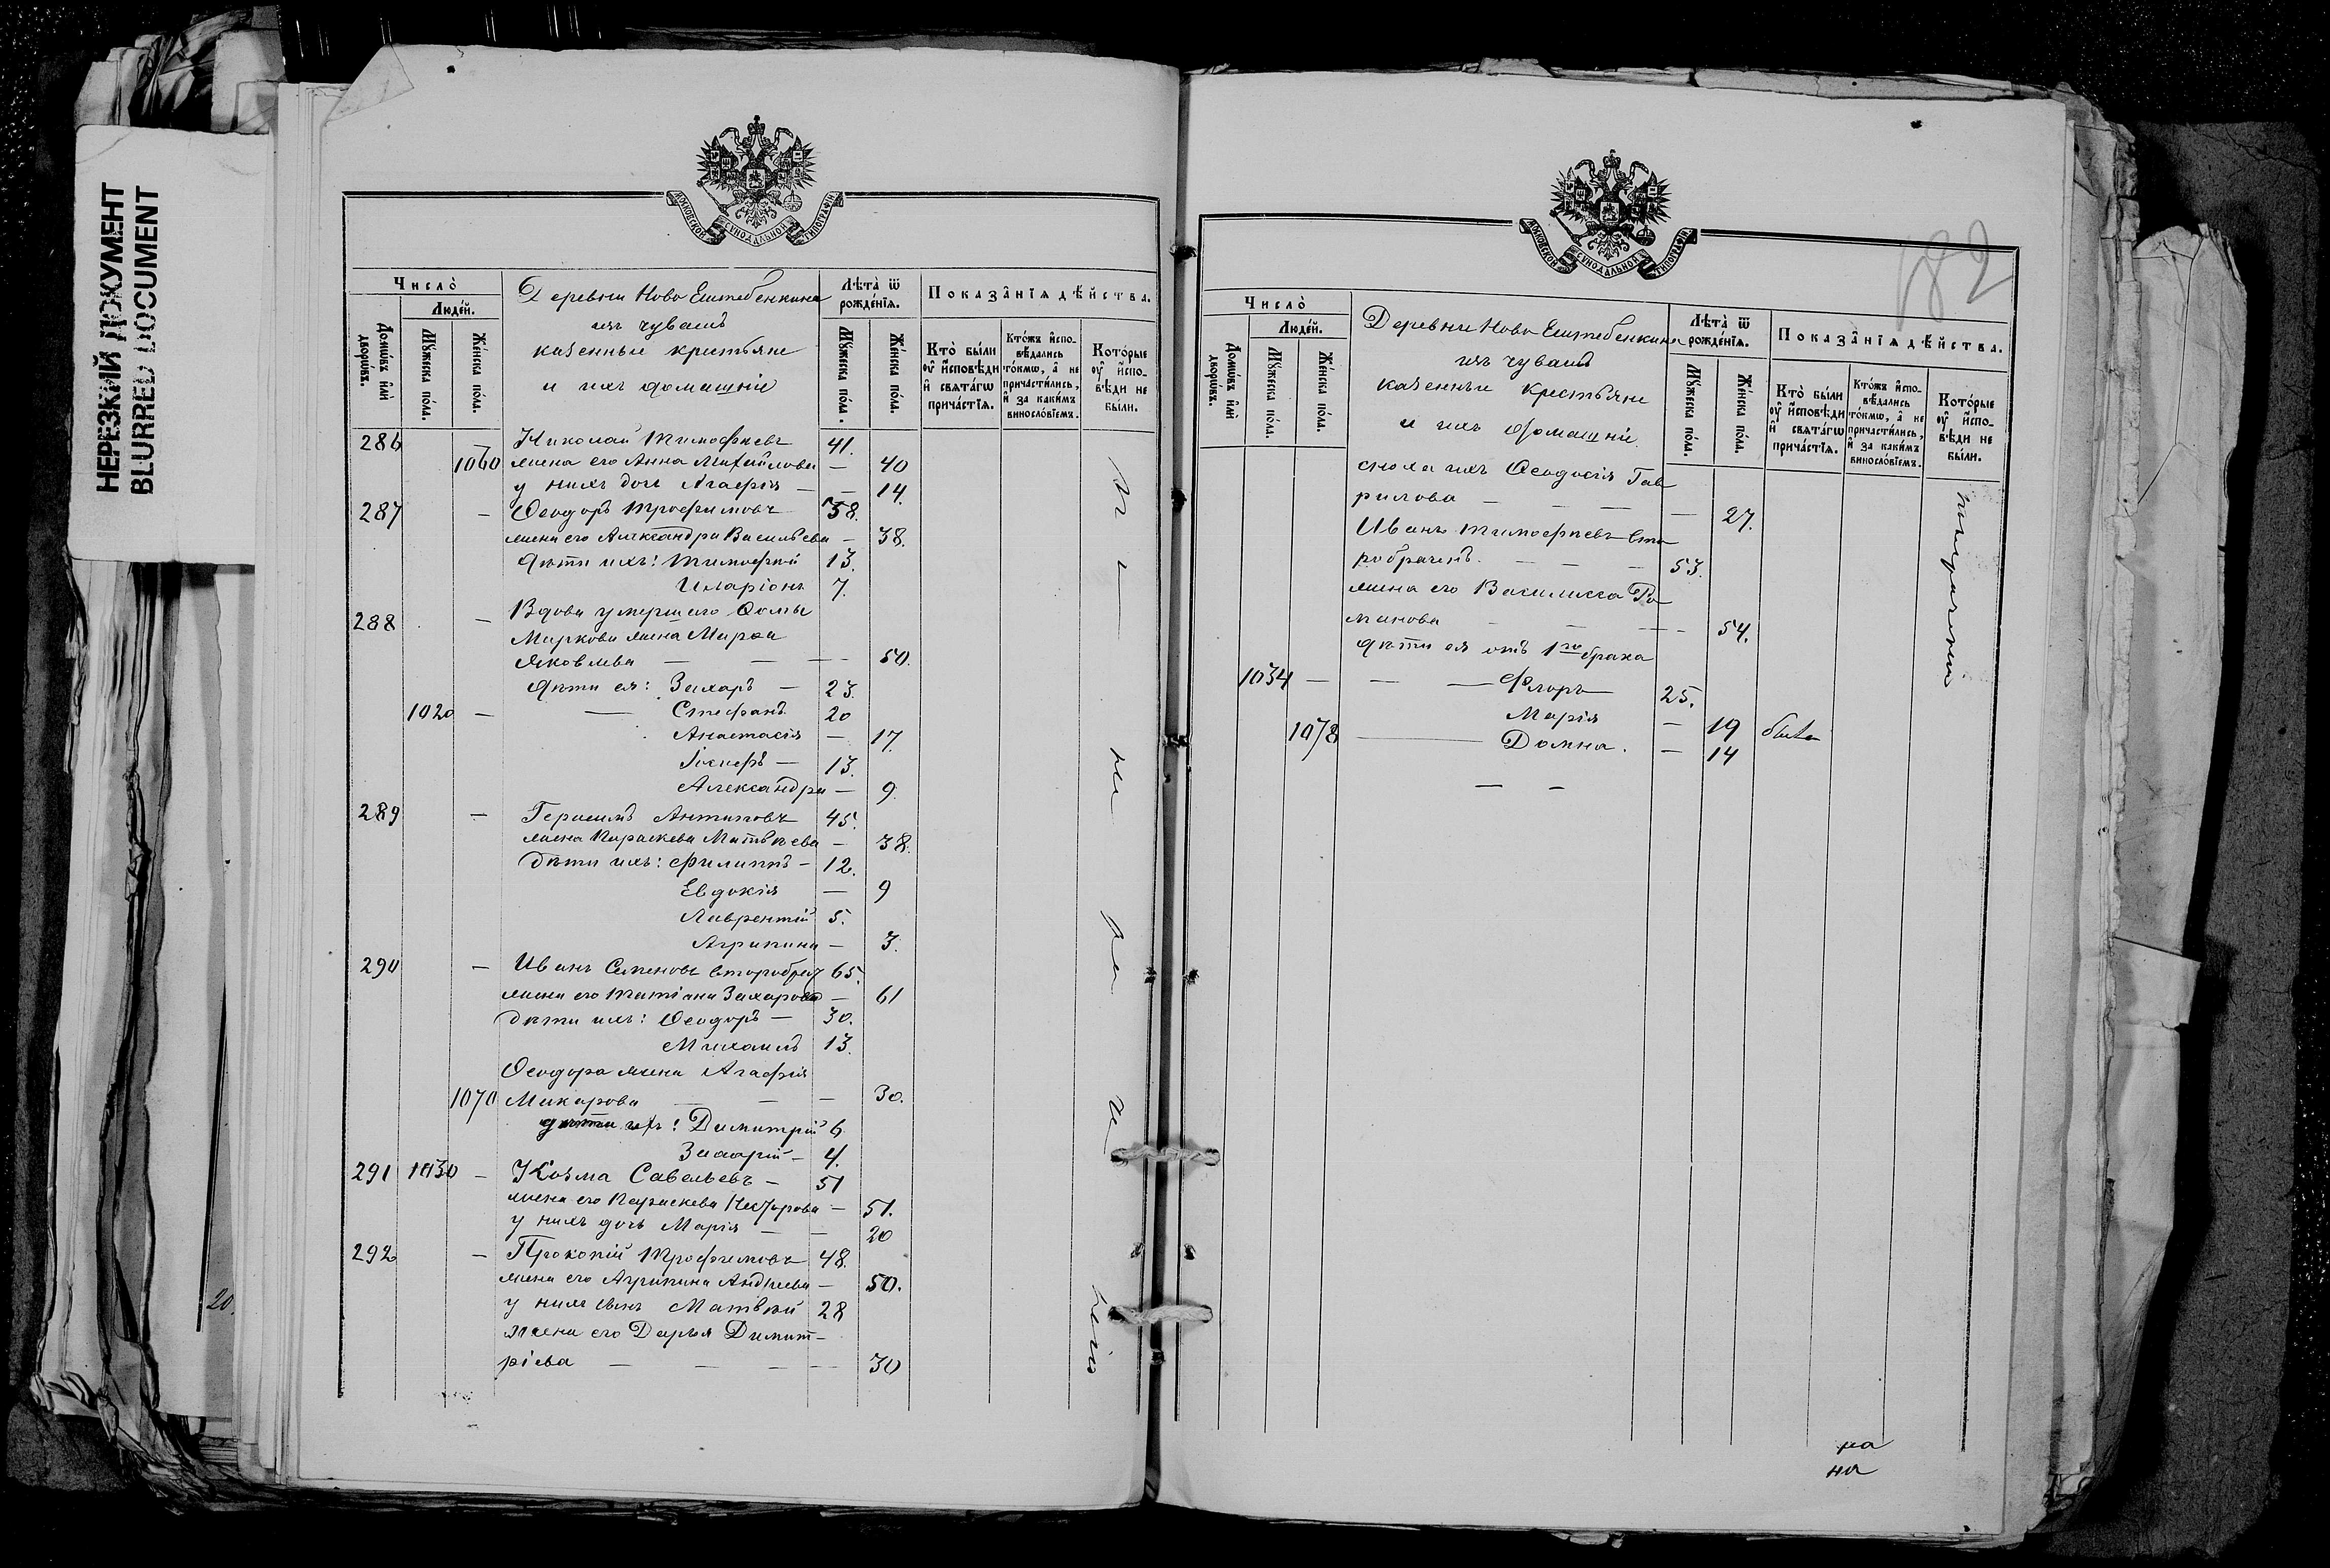 НЕРЕЗКИЙ ДОКУМЕНТ
BLURRED DOCUMENT
20.
МОСКОВСКОЙ СУНОДАЛЬНОЙ ТИПОГРАФІИ
Число̀
Людéй.
Домѡ́въ и҆лѝ дворѡ́въ.
Мꙋ́жеска по́ла.
Же́нска по́ла.
Деревни Ново Ештебенкина
изъ чувашъ
казенные крестьяне
и ихъ домашніе
Лѣта̀ ѿ рожде́нїѧ.
Мꙋ́жеска по́ла.
Же́нска по́ла.
Показа̂нїѧ дѣ́йства.
Кто̀ бы́ли ᲂу҆ и҆́сповѣди и҆ свѧта́гѡ прича́стїѧ.
Кто́жъ и҆спо-вѣ́дались то́кмѡ, а҆ не причасти́лись, и҆ за каки́мъ винослóвїемъ.
Кото́рые ᲂу҆ и҆́спо-вѣди не бы́ли.
286 — Николай Тимофѣевъ 41.
1060 жена его Анна Михайлова — 40
у нихъ дочь Агафія — — 14.
287 — Ѳеодоръ Трофимовъ 38.
жена его Александра Васильева — 38.
Дѣти ихъ: Тимофей 13.
Иларіонъ 7.
288 — Вдова умершаго Ѳомы
Маркова жена Марѳа
Яковлева — — — 50.
Дѣти ея: Захаръ — 23.
1020 — — Стефанъ 20
Анастасія — 17.
13.
Александра — 9.
289 — Герасимъ Антиповъ 45.
жена Параскева Матвѣева — 38.
дѣти ихъ: Филиппъ — 12.
Евдокія — 9
Лаврентій 5.
Агрипина — 3.
290 — Иванъ Семеновъ второбрач 65.
жена его Татіана Захарова — 61
дѣти ихъ: Ѳеодоръ — 30.
Михаилъ 13.
Ѳеодора жена Агафія
1070 Макарова — — — 30.
дѣти ихъ: Димитрій 6
4.
291 1030 — Козма Савельевъ — 51
жена его Параскева — 51.
у нихъ дочь Марія — — 20
292 — Прокопій Трофимовъ 48.
жена его Агрипина Андреева — 50.
у нихъ сынъ Матвѣй 28
жена его Дарья Димит-
ріева — — — — 30
по не ра ченію
82
МОСКОВСКОЙ СУНОДАЛЬНОЙ ТИПОГРАФІИ
Число̀
Людéй.
Домѡ́въ и҆лѝ дворѡ́въ.
Мꙋ́жеска по́ла.
Же́нска по́ла.
Деревни Ново Ештебенкина
изъ чувашъ
казенные крестьяне
и ихъ домашніе
Лѣта̀ ѿ рожде́нїѧ.
Мꙋ́жеска по́ла.
Же́нска по́ла.
Показа̂нїѧ дѣ́йства.
Кто̀ бы́ли ᲂу҆ и҆́сповѣди и҆ свѧта́гѡ прича́стїѧ.
Кто́жъ и҆спо-вѣ́дались то́кмѡ, а҆ не причасти́лись, и҆ за каки́мъ винослóвїемъ.
Кото́рые ᲂу҆ и҆́спо-вѣди не бы́ли.
сноха ихъ Ѳеодосія Гав
рилова — — — — 27.
Иванъ Тимофѣевъ вто
робрачн. — — — 53.
жена его Василисса Ро
манова — — — — 54.
Дѣти ея отъ 1го брака
1034 — — — Флоръ — 25.
Марія — 19 была
1078 — Домна. — 14
— —
по нераченію
ра
на